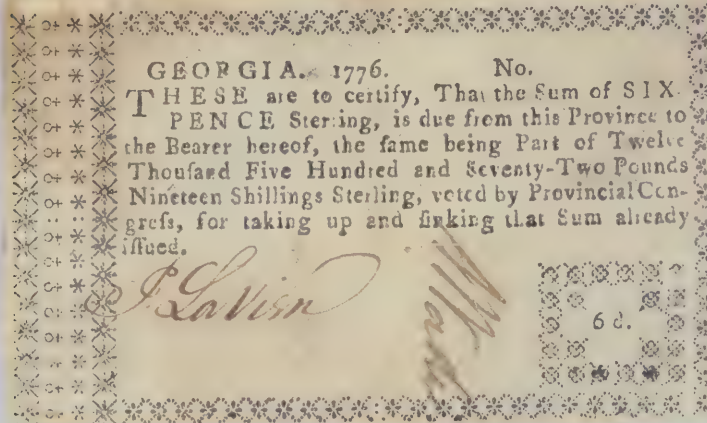 GEORGIA. 1776. No.
THESE are to certify, That the Sum of SIX-
PENCE Sterling, is due from this Province to
the Bearer hereof, the ſame being Part of Twelve
Thouſand Five Hundred and Seventy-Two Pounds
Nineteen Shillings Sterling, voted by Provincial Con-
greſs, for taking up and ſinking that Sum already
iſſued.
6 d.